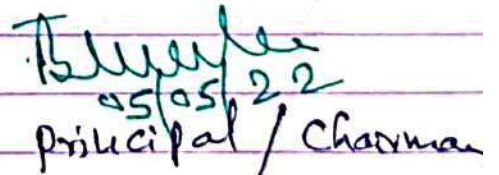 05/05/22
Principal / Chairman